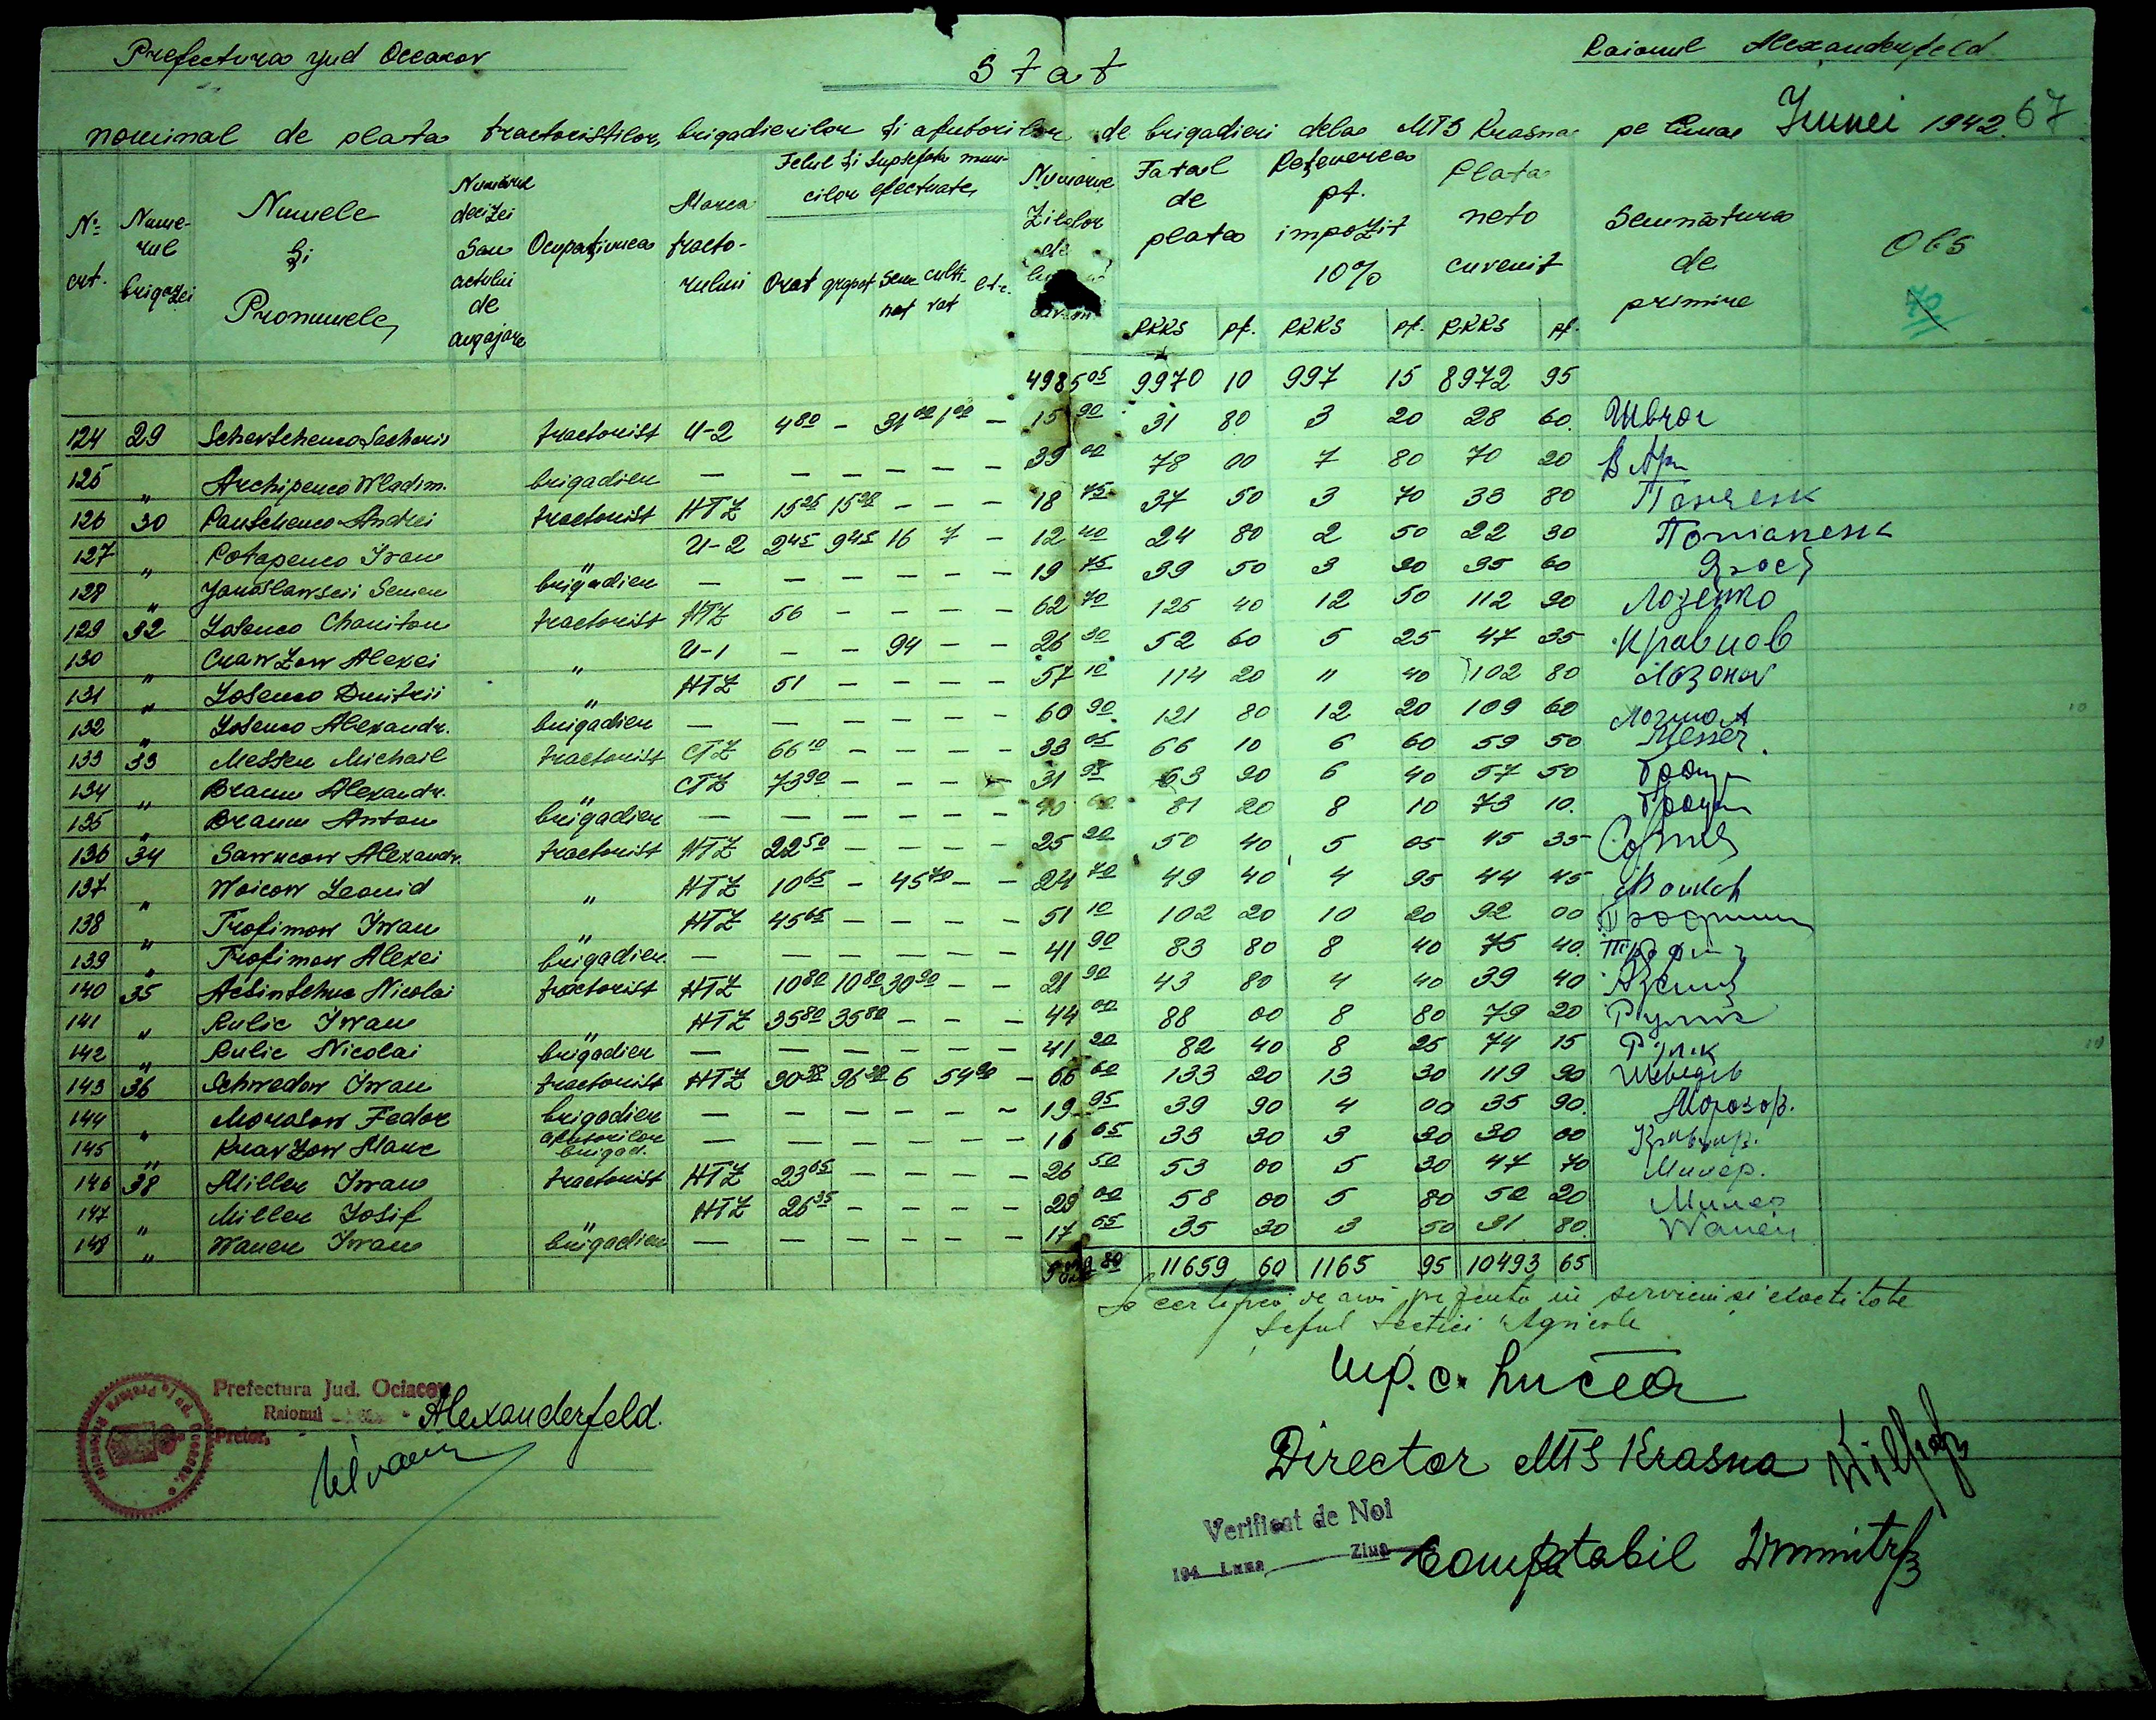 Prefectura jud Oceacov
Stat
Raionul Alexanderfeld
nominal de plata tractoristilor, brigadierilor și ajutorilor de brigadieri dela MTS Krasna pe luna Junei 1942. 67
Nº crt.
Numerul brigazei
Numele și Pronumele
Numărul deciziei sau actului de angajare
Ocupațiunea
Marca tractorului
Felul și suprafața muncilor efectuate
Orat grapat semnat cultivat etc.
Numărul zilelor de
Total de plata
Reținerea pt. impozit 10%
Plata neto cuvenit
Semnătura de primire
Obs
RKKS pf. RKKS pf. RKKS pf.
4985 05 9970 10 997 15 8972 95
124 29 Schevtschenco Sachari tractorist U-2 4 80 – 31 00 1 00 – 15 90 31 80 3 20 28 60.
125 " Archipenco Wladim. brigadier — — — — — — 39 00 78 00 7 80 70 20
126 30 Pantschenco Andrei tractorist HTZ 15 25 15 28 – – – 18 75 37 50 3 70 33 80
127 " Potapenco Ivan " U-2 2 45 9 45 16 7 – 12 40 24 80 2 50 22 30
128 " Jaroslawscii Semen brigadier — — — — — — 19 75 39 50 3 90 35 60
129 32 Losenco Chariton tractorist HTZ 56 – – – – 62 70 125 40 12 50 112 90 Лозенко
130 " Crawzow Alexei " U-1 – – 94 – – 26 30 52 60 5 25 47 35 Кравцов
131 " Losenco Dmitrii " HTZ 51 – – – – 57 10 114 20 11 40 102 80
132 " Losenco Alexandr. brigadier — — — — — — 60 90 121 80 12 20 109 60
133 33 Messer Michail tractorist CTZ 66 10 – – – – 33 05 66 10 6 60 59 50 Messer.
134 " Braun Alexandr. " CTZ 73 90 – – – – 31 95 63 90 6 40 57 50
135 " Braun Anton brigadier — — — — — — 40 60 81 20 8 10 73 10.
136 34 Sawucow Alexandr. tractorist HTZ 22 50 – – – – 25 20 50 40 5 05 45 35
137 " Woicow Leonid " HTZ 10 65 – 45 70 – – 24 70 49 40 4 95 44 45
138 " Trofimow Iwan " HTZ 45 65 – – – – 51 10 102 20 10 20 92 00
139 " Trofimow Alexei brigadier — — — — — — 41 90 83 80 8 40 75 40.
140 35 Acsintschuc Nicolai tractorist HTZ 10 80 10 80 30 90 – – 21 90 43 80 4 40 39 40
141 " Rulic Iwan " HTZ 35 80 35 80 – – – 44 00 88 00 8 80 79 20
142 " Rulic Nicolai brigadier — — — — — — 41 20 82 40 8 25 74 15
143 36 Schwedow Iwan tractorist HTZ 90 38 96 38 6 54 90 – 66 60 133 20 13 30 119 90
144 " Morosow Fedor brigadier — — — — — — 19 95 39 90 4 00 35 90. Морозов.
145 " Krawzow Marc ajutorilor brigad. — — — — — — 16 65 33 30 3 30 30 00
146 38 Miller Iwan tractorist HTZ 23 05 – – – – 26 50 53 00 5 30 47 70 Милер.
147 " Miller Iosif " HTZ 26 35 – – – – 29 00 58 00 5 80 52 20 Милер
148 " Waner Iwan brigadier — — — — — — 17 65 35 30 3 50 31 80. Waner
80 11659 60 1165 95 10493 65
Se certifică de noi prezenta in serviciu și exactitate
Șeful Secției Agricole
Prefectura Jud. Ociacov
Raionul Alexanderfeld.
Pretor,
Director MTS Krasna
Verificat de Noi
194 Luna Ziua
Comptabil